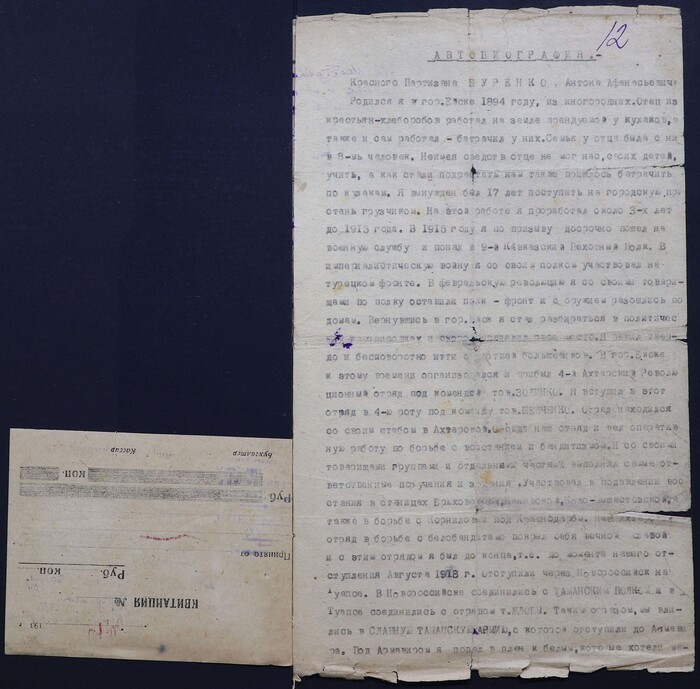 12
АВТОБИОГРАФИЯ.-
Красного Партизана БУРЕНКО, Антона Афанасьевича
Родился я в гор.Ейске 1894 году, из иногородних.Отец из
крестьян-хлеборобов работал на земле арендуемой у кулаков, а
также и сам работал - батрачил у них.Семья у отца была с ни
в 8-мь человек. Неимея средств отце не мог нас, своих детей,
учить, а как стали подрастать нам также пришлось батрачить
по кулакам. Я вынужден был 17 лет поступить на городскую при
стань грузчиком. На этой работе я проработал около 3-х лет
до 1913 года. В 1913 году я по призыву досрочно пошел на
военную службу и попал в 9-й Кавказский Полк. В
империалистическую войну я со своим полком участвовал на
турецком фронте. В февральскую революцию я со своими товари-
щами по полку оставили полк - фронт и с оружием разошлись по
домам. Вернувшись в гор. Ейск я стал разбираться в политичес
место.Я решил твер-
до и бесповоротно итти с партией большевиков. В гор.Ейске
к этому времени организовался и прибыл 4-й Ахтарский Револю
ционный отряд под командой тов. Я вступил в этот
отряд в 4-ю роту под команду тов.ШЕВЧЕНКО. Отряд находился
со своим штабом в Ахтарской. наш отряд и вел оператив
ную работу по борьбе с восстанием и бандитизмом.Я со своими
товарищами группами и отдельными частями выполнял самые от-
ветственные поручения и задания.Участвовал в подавлении вос
стания в станицах Брыховецкой, а
также в борьбе с Корниловым под Краснодаром.
отряд в борьбе с белобандитами покрыл себя вечной славой
и с этим отрядом я был до конца,т.е. до момента нашего от-
ступления Августа 1918 г. Отступили через Новороссийск на
Туапсе. В Новороссийске соединились с ТАМАНСКИМ ПОЛКОМ и в
Туапсе соединились с отрядом т. Таким образом, мы вли-
лись в СЛАВНУЮ ТАМАНСКУЮ АРМИЮ, с которой отступили до Армави
ра. Под Армавиром я попал в плен к белым, которые хотели
КВИТАНЦИЯ №
193
Руб.
коп.
Принято от
Руб
коп.
Бухгалтер
Кассир